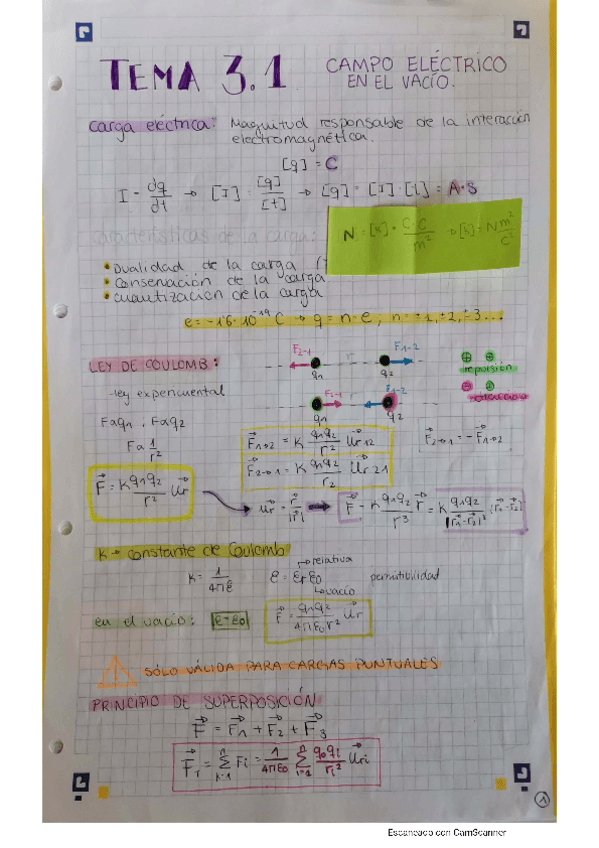 TEMA 3.1 CAMPO ELÉCTRICO
EN EL VACÍO.
carga eléctrica: Magnitud responsable de la interacción
electromagnética.
[q] = C
I = dq/dt → [I] = [q]/[t] → [q] = [I]·[t] = A·S
características de la carga:
N = [K] · C·C/m² → [k] = N m²/C²
• Dualidad de la carga
• Conservación de la carga
• cuantización de la carga
e = -1'6·10⁻¹⁹ C → q = n·e, n = ±1, ±2, ±3...
LEY DE COULOMB:
F2-1 r F1-2
q1 q2
repulsión
-ley experimental
F2-1 F1-2
q1 q2
atracción
Fαq1, Fαq2
Fα 1/r²
F1→2 = K q1q2/r² Ur12
F2→1 = -F1→2
F2→1 = K q1q2/r2 Ur 21
F = K q1q2/r² Ur
Ur = r/|r| → F = K q1q2/r³ r = K q1q2/|r1-r2|³ (r1-r2)
K → constante de Coulomb
K = 1/4πε
ε = εr ε0
→relativa
→vacío
permitibilidad
en el vacío: ε=ε0
F = q1q2/4πε0r² Ur
SÓLO VÁLIDA PARA CARGAS PUNTUALES
PRINCIPIO DE SUPERPOSICIÓN
F = F1 + F2 + F3
FT = Σ k=1 n Fi = 1/4πε0 Σ i=1 n q0qi/ri² Uri
1
Escaneado con CamScanner